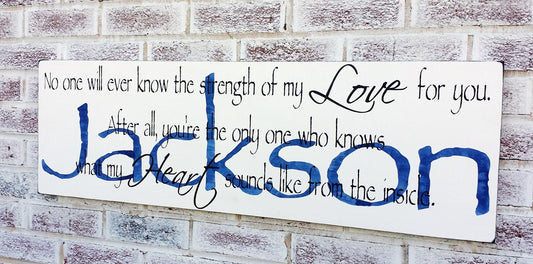 No one will ever know the strength of my Love for you.
After all, you're the only one who knows
Jackson
what my Heart sounds like from the inside.